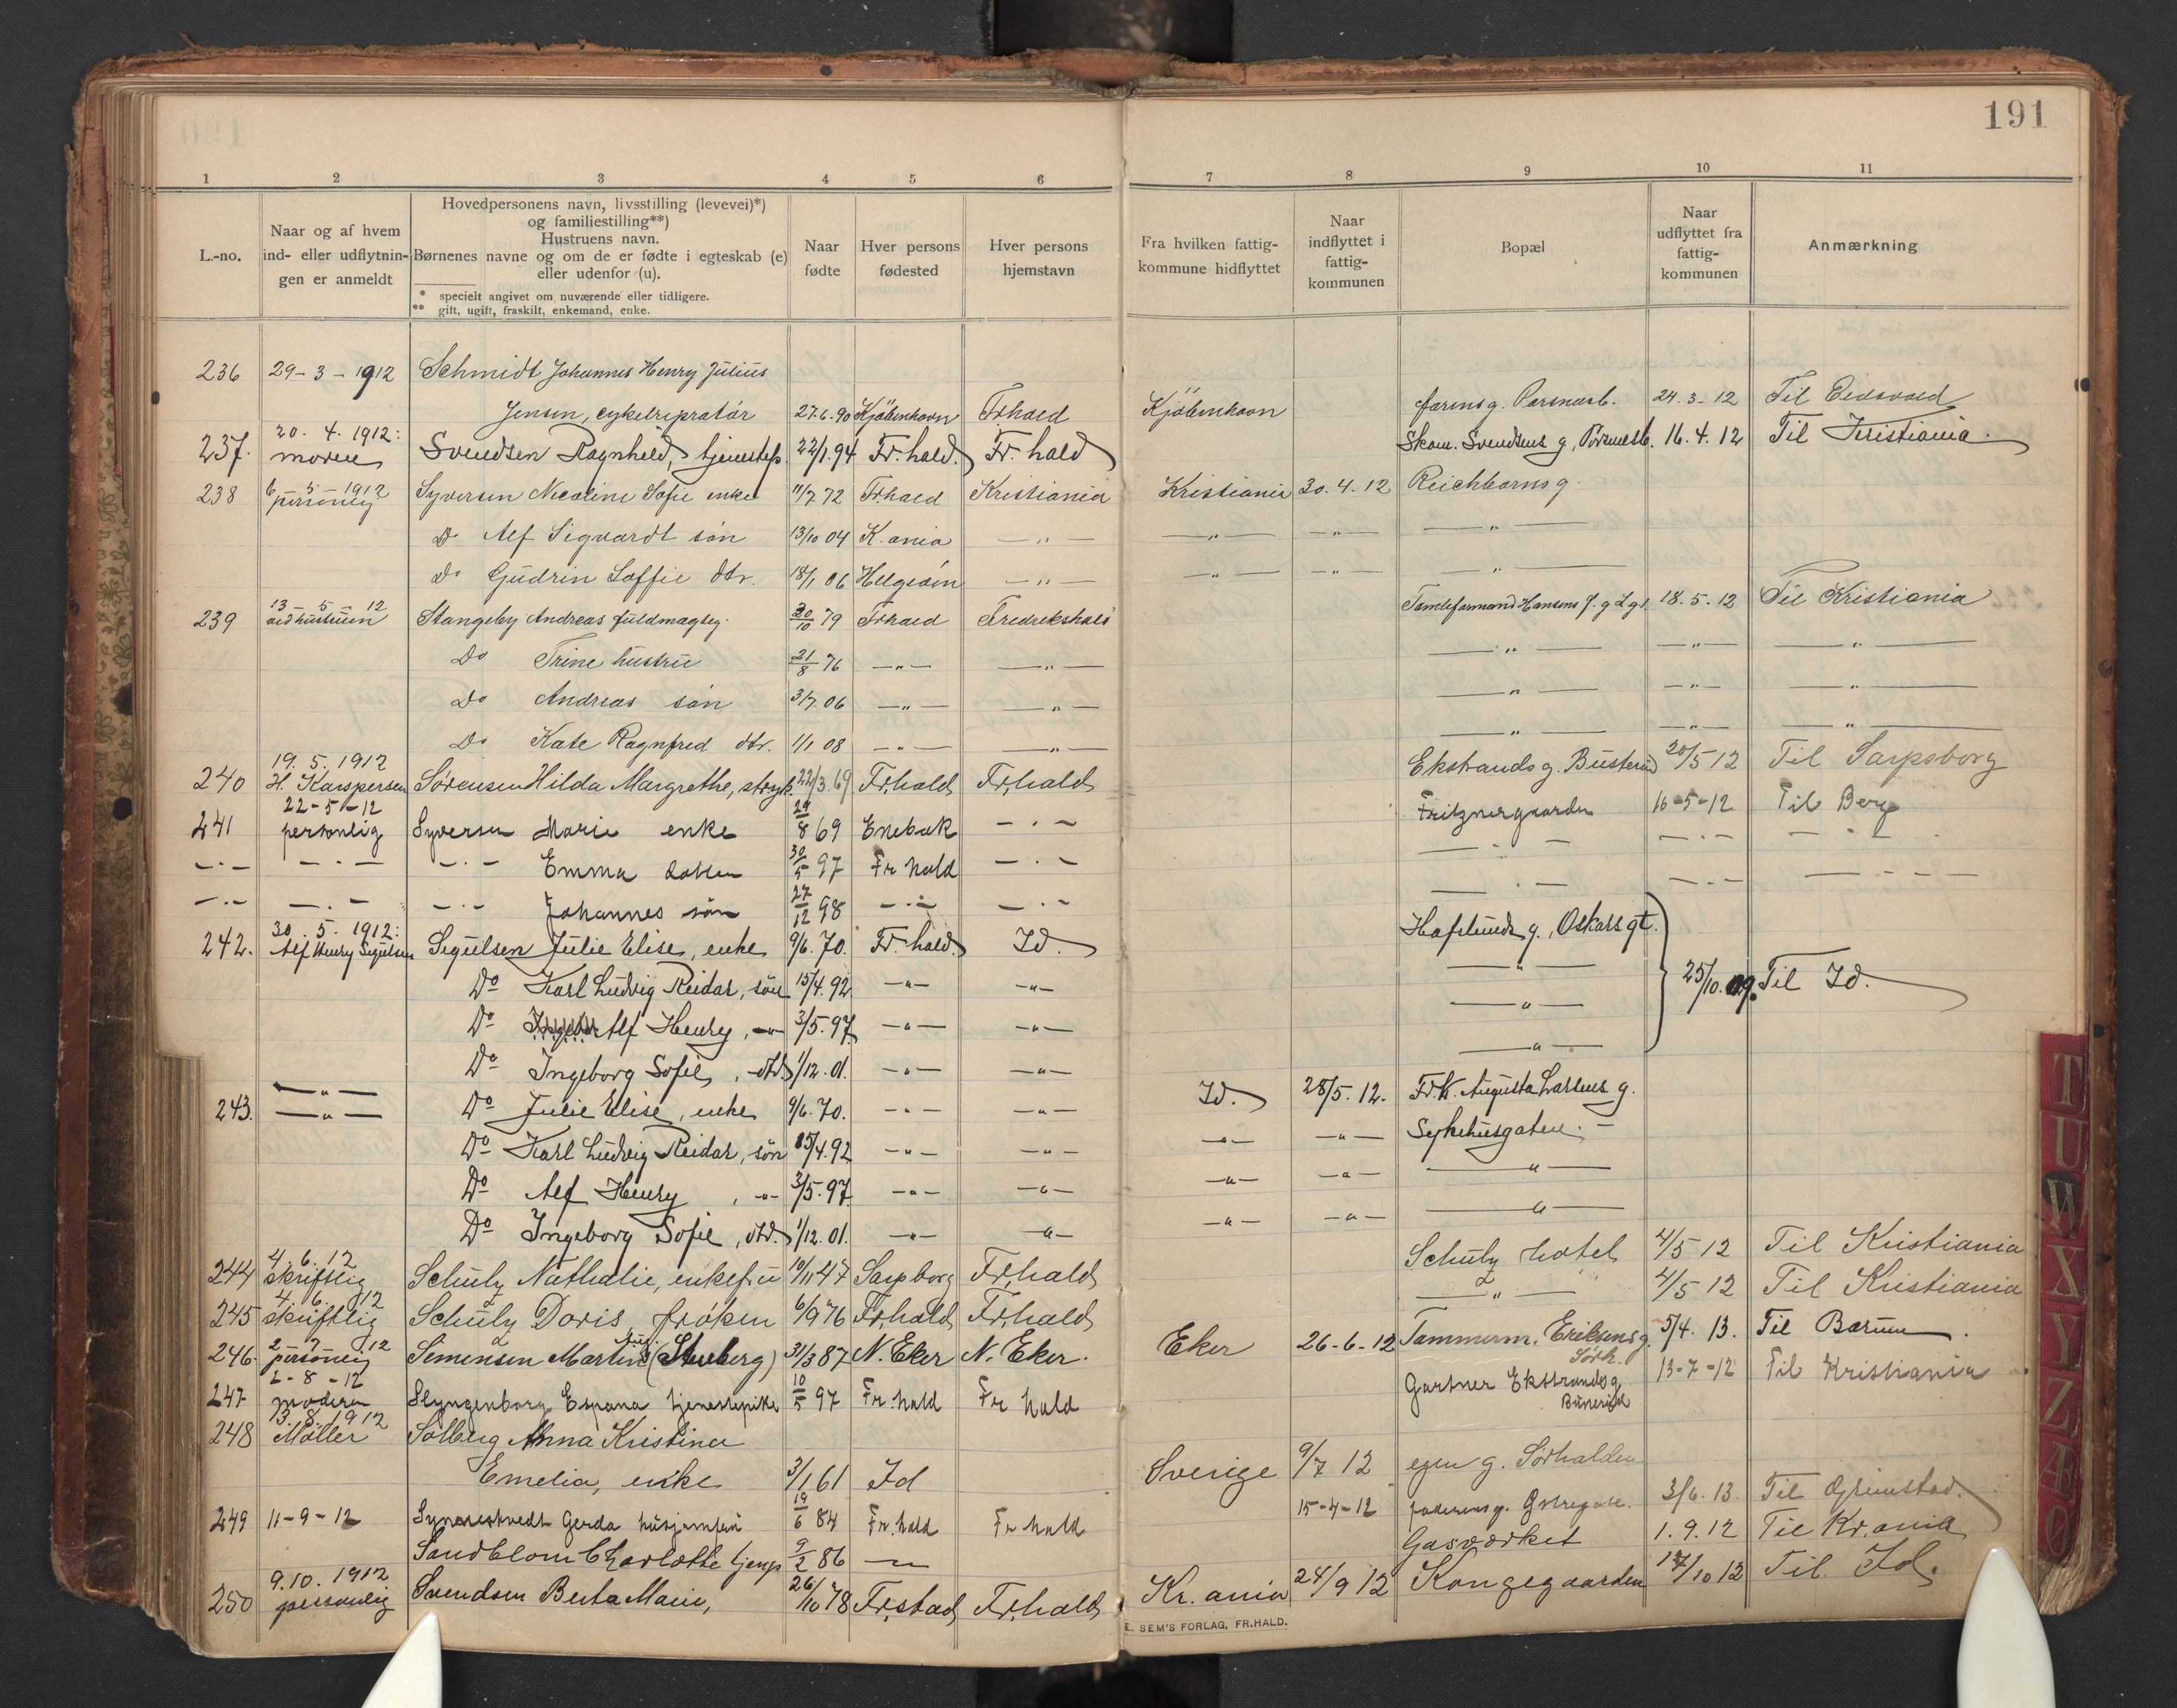 191
1 2 3 4 5 6 7 8 9 10 11
L.-no.
Naar og af hvem ind- eller udflytnin- gen er anmeldt
Hovedpersonens navn, livsstilling (levevei)*)
og familiestilling**)
Hustruens navn.
Børnenes navne og om de er fødte i egteskab (e)
eller udenfor (u).
* specielt angivet om nuværende eller tidligere.
** gift, ugift, fraskilt, enkemand, enke.
Naar fødte
Hver persons fødested
Hver persons hjemstavn
Fra hvilken fattig- kommune hidflyttet
Naar indflyttet i fattig- kommunen
Bopæl
Naar udflyttet fra fattig- kommunen
Anmærkning
236 29-3-1912 Schmidt Johannes Henry Julius
Jensen, cykelrepratør 27.6.90 Kjøbenhavn Frhald Kjøbenhavn 24.3-12 Til Eidsvold
20.4.1912:
237. moren Svendsen Ragnhild, tjenestep. 22/1.94 Fr.hald. Fr. hald Skom. Svendsens g, 16.4.12 Til Kristiania.
6-5-1912
238 personlig Syversen Nicoline Sofie enke 11/7 72 Frhald Kristiania Kristiania 30.4.12 Reichborns g.
Do Alf Sigvardt søn 13/10 04 K.ania —„— —„— —„— —„—
Do Gudrin Soffie dtr. 18/1 06 Helgøen —„— —„— —„— —„—
13-5-12
239 ved hustruen Stangeby Andreas fuldmægtig. 20/10 79 Frhald Fredrikshald Hansens 18.5.12 Til Kristiania
Do Trine hustru 21/8 76 —„— —„— —„— —„— —„—
Do Andreas søn 3/7 06 —„— —„— —„— —„— —„—
Do Kate Ragnfred dtr. 1/1 08 —„— —„— —„— —„— —„—
19.5.1912
240 H. Karspersen Sørensen Hilda Margrethe, stryk. 22/3.69 Fr,hald Fr,hald Ekstrands g. Busterud 20/5 12 Til Sarpsborg
22-5-12
241 personlig Syversen Marie enke 29/8 69 Enebak —„— Fritznergaarden 16-5-12 Til Berg
—„— —„— —„— Emma datter 30/5 97 Fr hald —„— —„— —„— —„—
—„— —„— —„— Johannes søn 27/12 98 —„— —„— —„— —„— —„—
30.5.1912:
242. Alf Henry Sigulsen Sigulsen Julie Elise, enke 9/6.70. Fr.hald. Id. Hafslunds g., Oskars gt. 25/10.09. Til Id.
Do Karl Ludvig Reidar, søn 15/4.92 —„— —„— —„—
Do Alf Henry, —„— 3/5.97 —„— —„— —„—
Do Ingeborg Sofie, dtr. 1/12.01. —„— —„— —„—
243. —„— Do Julie Elise, enke 9/6.70. —„— —„— Id. 28/5.12. Fr.k. Augusta Larsens g.
Do Karl Ludvig Reidar, søn 15/4.92 —„— —„— —„— —„— Sykehusgaten.
Do Alf Henry, —„— 3/5.97 —„— —„— —„— —„— —„—
Do Ingeborg Sofie, dtr. 1/12.01. —„— —„— —„— —„— —„—
4.6.12
244 skriftlig Schulz Nathalie, enkefru 10/11 47 Sarpborg Fr,hald Schulz hotel 4/5 12 Til Kristiania
4.6.12
245 skriftlig Schulz Doris frøken 6/9 76 Fr,hald Fr,hald —„— 4/5 12 Til Kristiania
2-7-12
246. personlig Simensen Martin (Stuberg) 31/3 87 N. Eker N. Eker. Eker 26-6-12 Tømmerm. Eriksens g. Sørh. 5/4. 13. Til Bærum.
2-8-12
247 moderen Slyngenborg Espana tjenestepike 10/5 97 Fr.hald Fr hald Gartner Ekstrands g. 13-7-12 Til Kristiania
13.8.1912
248 Møller Solberg Anna Kristina
Emelia, enke 3/1 61 Id Sverige 9/7 12 egen g. Sørhalden
249 11-9-12 Gerda husjomfru 19/6 84 Fr.hald Fr hald 15-4-12 faderens g. 3/6. 13. Til Grimstad.
Sandblom Charlotte tjenp 9/2 86 —„— Gasværket 1.9.12 Til Kr.ania
9.10.1912
250 personlig Svendsen Berta Marie, 26/10 78 Fr,stad Fr,hald Kr.ania 24/9 12 Kongegaarden 17/10 12 Til Id.
E. SEM'S FORLAG, FR.HALD.
T
U
W
X
Y
Z
Æ
Ø